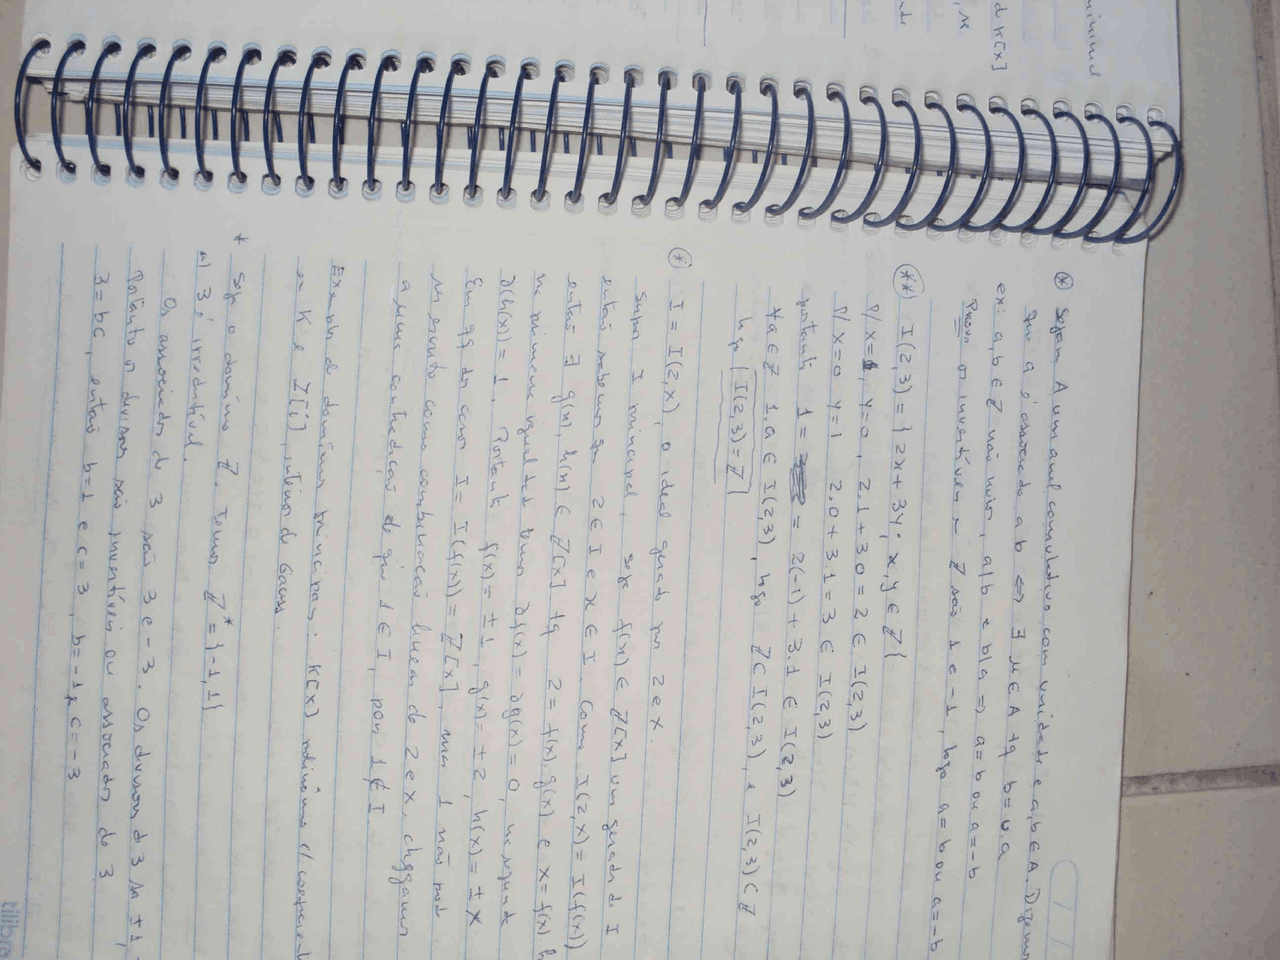 minimal
d K[x]
, se
* Sejam A um anel comutativo com unidade e a, b ∈ A. Dizemos
que a é associado a b ⇔ ∃ u ∈ A tq b = u a
ex: a, b ∈ Z não nulos, a|b e b|a ⇒ a = b ou a = -b
Prova os invertíveis Z são 1 e -1, logo a = b ou a = -b
** I(2,3) = { 2x + 3y; x, y ∈ Z }
P/ x = 1, y = 0, 2.1 + 3.0 = 2 ∈ I(2,3)
P/ x = 0 y = 1 2.0 + 3.1 = 3 ∈ I(2,3)
portanto 1 = = 2(-1) + 3.1 ∈ I(2,3)
∀a ∈ Z 1.a ∈ I(2,3), logo Z ⊂ I(2,3), e I(2,3) ⊂ Z
logo I(2,3) = Z
* I = I(2,x), o ideal gerado por 2 e x.
Supon I principal, seja f(x) ∈ Z[x] um gerador de I
então sabemos que 2 ∈ I e x ∈ I. Como I(2,x) = I(f(x))
então ∃ g(x), h(x) ∈ Z[x] tq 2 = f(x).g(x) e x = f(x) h
na primeira igualdade temos ∂f(x) = ∂g(x) = 0, na segunda
∂(h(x)) = 1. Portanto f(x) = ±1, g(x) = ±2, h(x) = ±x
Em qq dos casos I = I(f(x)) = Z[x], mas 1 não pode
ser escrito como combinação linear de 2 e x. chegamos
a uma contradição de que 1 ∈ I, pois 1 ∉ I.
Exemplo de domínios principais: K[x] polinômio c/ coeficient
em K e Z[i], inteiros de Gauss.
* Seja o domínio Z. Temos Z* = {-1, 1}
a) 3 é irredutível.
Os associados de 3 são 3 e -3. Os divisores de 3 são ±1,
Portanto os divisores são invertíveis ou associados de 3
3 = bc, então b = 1 e c = 3, b = -1 e c = -3
tilibra